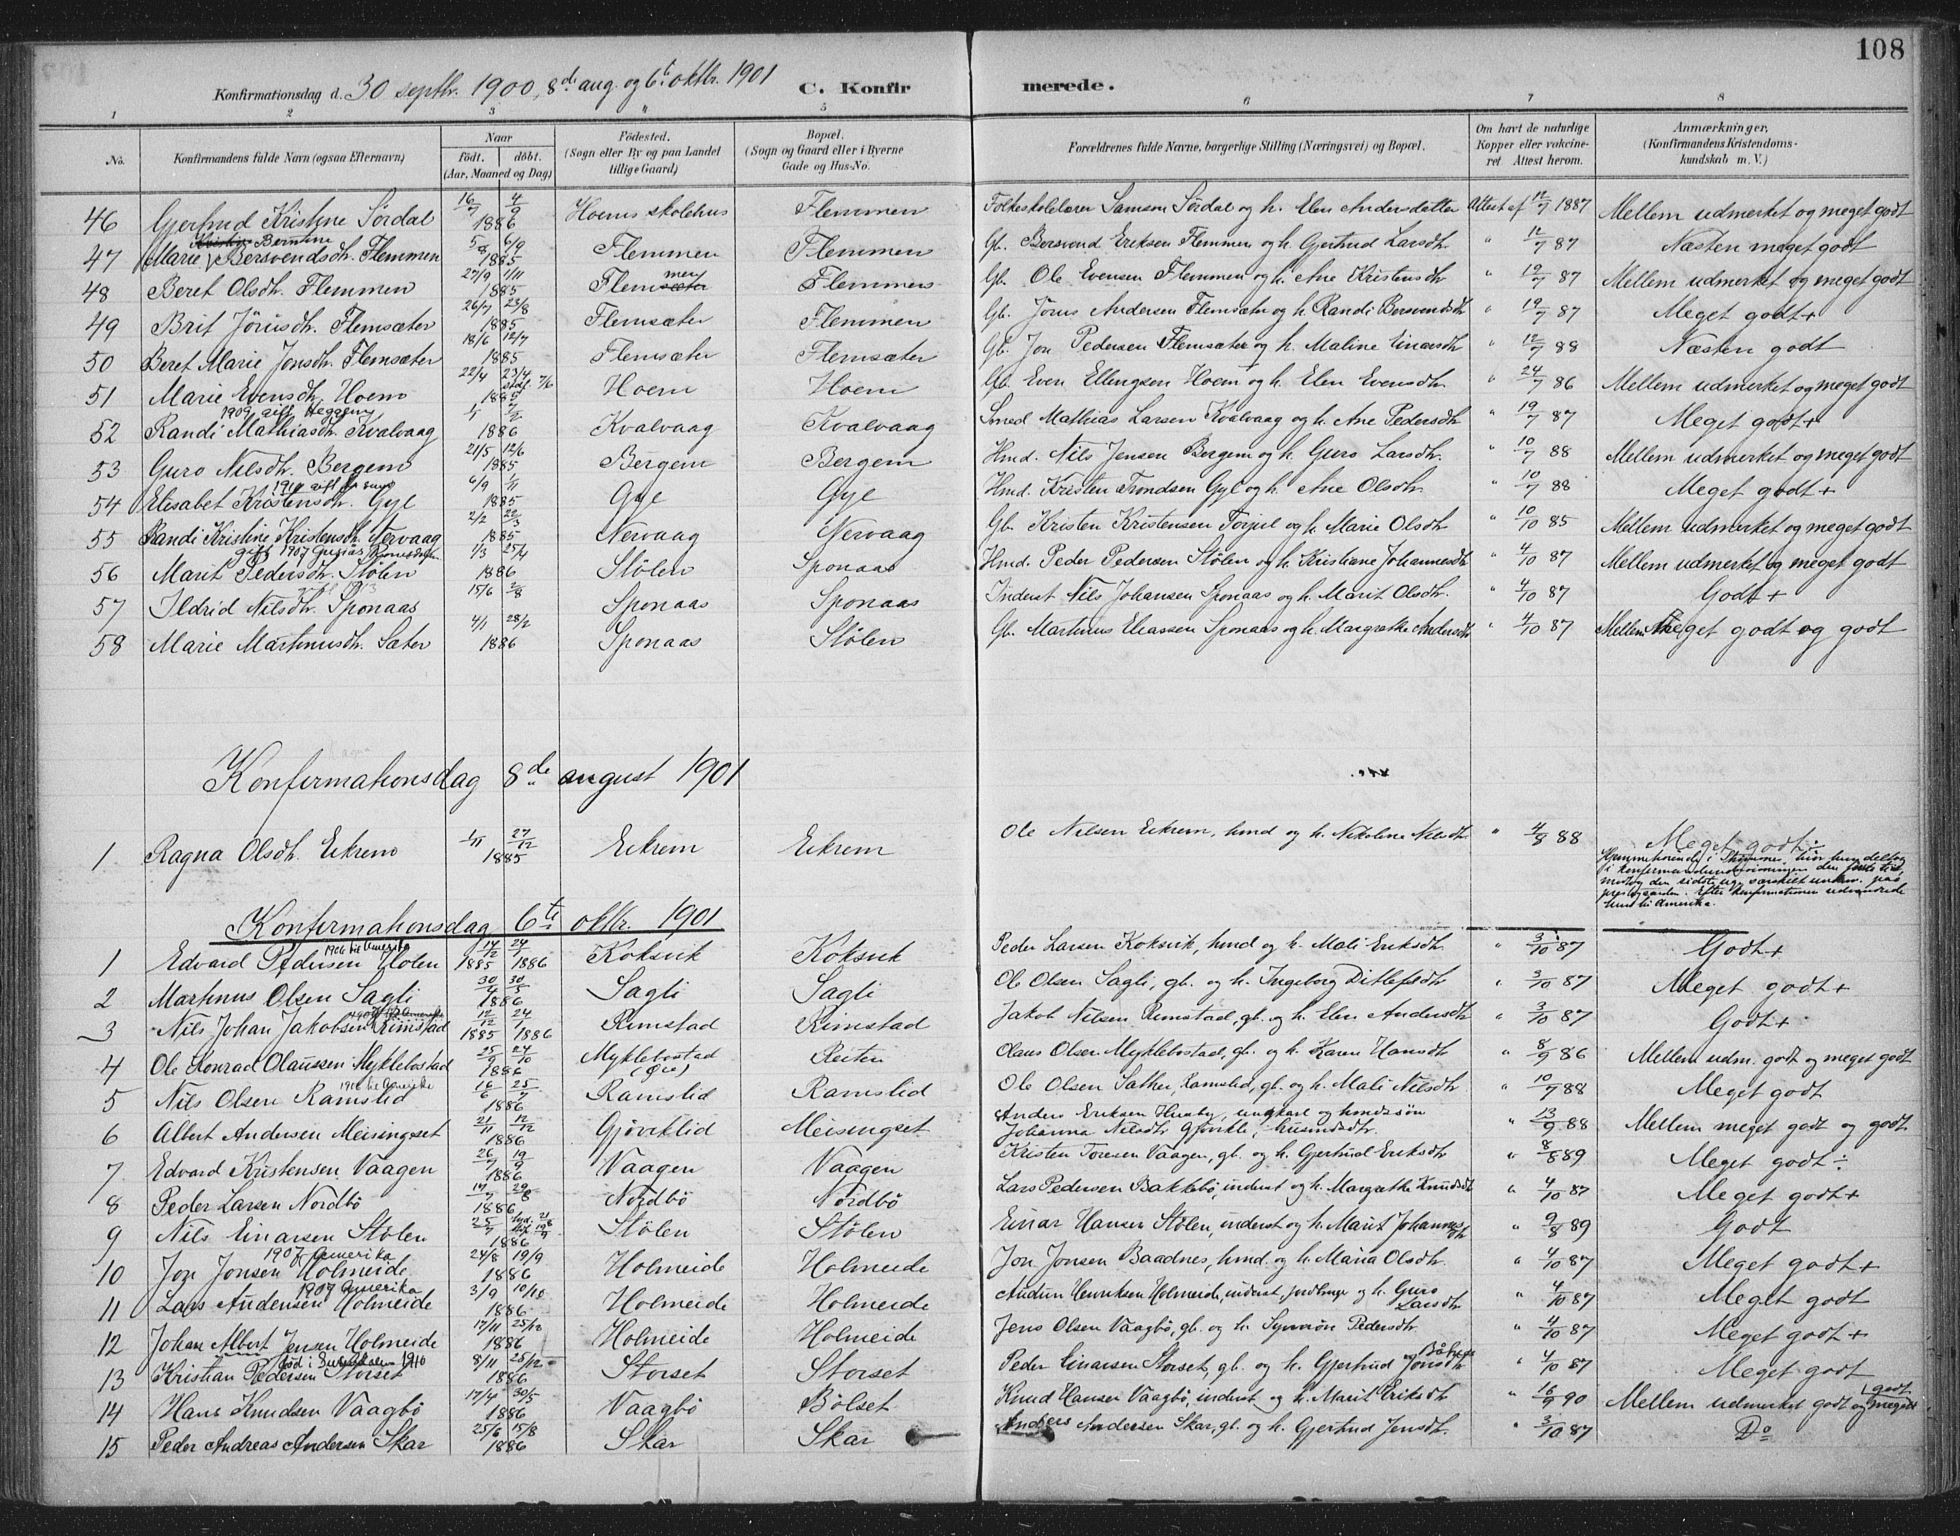 108
Konfirmationsdag d. 30 septbr. 1900, 8de aug. og 6te oktbr. 1901
C. Konfirmerede.
1 2 3 4 5 6 7 8
No. Konfirmandens fulde Navn (ogsaa Efternavn) Naar født, døbt. (Aar, Maaned og Dag) Fødested. (Sogn eller By og paa Landet tillige Gaard) Bopæl. (Sogn og Gaard eller i Byerne Gade og Hus-No. Forældrenes fulde Navne, borgerlige Stilling (Næringsvei) og Bopæl. Om havt de naturlige Kopper eller vakcineret Attest herom. Anmærkninger, (Konfirmandens Kristendomskundskab m. V.)
46 Gjertrud Kristine Sördal 16/7 4/9 1886 Hoems skolehus Flemmen Folkeskolelærer Samson Sördal og h. Elen Andersdatter Attest af 12/7 1887 Mellem udmerket og meget godt
Berntine
47 Marie Bersvendsdh. Flemmen 6/9 1885 Flemmen Flemmen Gb. Bersvend Eriksen Flemmen og h. Gjertrud Larsdh. " 12/7 87 Næsten meget godt
48 Beret Olsdh. Flemmen 27/9 1/11 1885 Flemmen Flemmen Gb. Ole Evensen Flemmen og h. Ane Kristensdh " 12/7 87 Mellem udmerket og meget godt
49 Brit Jörusdh. Flemsæter 26/7 23/8 1885 Flemsæter Flemmen Gb. Jörus Andersen Flemsæter og h. Randi Bersvendsdh " 19/7 87 Meget godt+
50 Beret Marie Jonsdh. Flemsæter 18/6 12/7 1885 Flemsæter Flemsæter Gb. Jon Pedersen Flemsæter og h. Maline Einarsdh " 12/7 88 Næsten godt
51 Marie Evensdh. Hoem 22/4 23/4 7/6 1885 Hoem Hoem Gb. Even Ellingsen Hoem og h. Elen Evensdh. " 24/7 86 Mellem udmerket og meget godt
1909 gift Heggem
52 Randi Mathiasdh. Kvalvaag 1886 Kvalvaag Kvalvaag Smed Mathias Larsen Kvalvaag og h. Ane Pedersdh " 19/7 87 Meget godt+
53 Guro Nilsdh. Bergem 21/5 12/6 1885 Bergem Bergem Hmd. Nils Jensen Bergem og h. Guro Larsdh. " 10/7 88 Mellem udmerket og meget godt
54 Elisabet Kristensdh. Gyl 6/9 1/11 1885 Gyl Gyl Hmd. Kristen Trondsen Gyl og h. Ane Olsdh. " 10/7 88 Meget godt+
55 Randi Kristine Kristensdh. Nervaag 2/2 22/3 1885 Nervaag Nervaag Gb. Kristen Kristensen Torjul og h. Marie Olsdh. " 10/10 85 Mellem udmerket og meget godt
gift 1907
56 Marit Pedersdh. Stölen 1/3 25/4 1886 Stölen Sponaas Hmd. Peder Pedersen Stölen og h. Kristiane Johannesdh " 4/10 87 Mellem udmerket og meget godt
57 Ildrid Nilsdh. Sponaas 15/6 2/8 Sponaas Sponaas Inderst Nils Johansen Sponaas og h. Marit Olsdh. " 4/10 87 Godt+
58 Marie Martinusdh. Sæter 4/1 28/2 1886 Sponaas Stölen Gb. Martinus Eliassen Sponaas og h. Margrethe Andersdh " 4/10 87 Mellem Meget godt og godt
Konfirmationsdag 8de august 1901
1 Ragna Olsdh. Eikrem 1/11 27/12 1885 Eikrem Eikrem Ole Nilsen Eikrem, hmd og h. Nikoline Nilsdh " 4/8 88 Meget godt÷
Hjemmehörende i Thomnes, hvor hun deltog
i konfirmandundervisningen den förste tid,
mottog den sidste ug. særskilt underv. paa
prestegaarden. Efter konfirmationen udvandrede
hun til Amerika.
Konfirmationsdag 6te oktbr. 1901
1906 til Amerika
1 Edvard Pedersen Holen 14/12 1885 24/1 1886 Koksvik Koksvik Peder Larsen Koksvik, hmd og h. Mali Eriksdh " 3/10 87 Godt+
2 Martinus Olsen Sagli 30/4 30/5 1886 Sagli Sagli Ole Olsen Sagli, gb. og h. Ingeborg Ditlefsdh " 3/10 87 Meget godt+
3 Nils Johan Jakobsen Rimstad 12/12 1885 24/1 1886 Rimstad Rimstad Jakob Nilsen Rimstad, gb. og h. Elen Andersdh " 3/10 87 Godt+
4 Ole Konrad Olaussen Myklebostad 25/9 24/10 1886 Myklebostad (Öre) Reiten Olaus Olsen Myklebostad, gb. og h. Karen Hansdh " 8/9 86 Mellem udm. godt og meget godt
1906 til Amerika
5 Nils Olsen Ramslid 16/6 25/7 1886 Ramslid Ramslid Ole Olsen Sæther, Ramslid, gb. og h. Mali Nilsdh " 10/7 88 Meget godt
6 Albert Andersen Meisingset 21/11 12/12 1886 Gjöviklid Meisingset Anders Eriksen Husby, ungkarl og hmdssön
Johanna Nilsdh Gjövikli, husmdsdh. " 13/9 88 Mellem meget godt og godt
7 Edvard Kristensen Vaagen 26/7 19/9 1886 Vaagen Vaagen Kristen Toresen Vaagen, gb. og h. Gjertrud Eriksdh " 8/8 89 Meget godt÷
8 Peder Larsen Nordbö 17/7 29/8 1886 Nordbö Nordbö Lars Pedersen Bakkebö, inderst og h. Margrethe Knudsdt " 4/10 87 Meget godt+
9 Nils Einarsen Stölen 25/7 1886 Stölen Stölen Einar Hansen Stölen, inderst og h. Marit Johannesdh " 9/8 89 Godt
1907 Amerika
10 Jon Jonsen Holmeide 24/8 19/9 1886 Holmeide Holmeide Jon Jonsen Baadnes, hmd. og h. Maria Olsdh " 4/10 87 Meget godt+
1907 Amerika
11 Lars Audensen Holmeide 3/9 10/10 1886 Holmeide Holmeide Audun Henriksen Holmeide, inderst og h. Guro Larsdh " 4/10 87 Meget godt
12 Johan Albert Jensen Holmeide 17/11 25/12 1886 Holmeide Holmeide Jens Olsen Vaagbö, gb. og h. Synnön Pedersdh. " 4/10 87 Meget godt+
13 Kristian Pedersen Storset 8/11 25/12 1886 Storset Storset Peder Einarsen Storset, gb. og h. Gjertrud Jonsdh " 4/10 87 Meget godt
14 Hans Knudsen Vaagbö 17/4 30/5 1886 Vaagbö Bölset Knud Hansen Vaagbö, inderst og h. Marit Eriksdh " 16/9 90 Mellem udmerket godt og meget godt
15 Peder Andreas Andersen Skar 25/6 15/8 1886 Skar Skar Anders Andersen Skar, gb. og h. Gjertrud Jensdh. " 3/10 87 Do